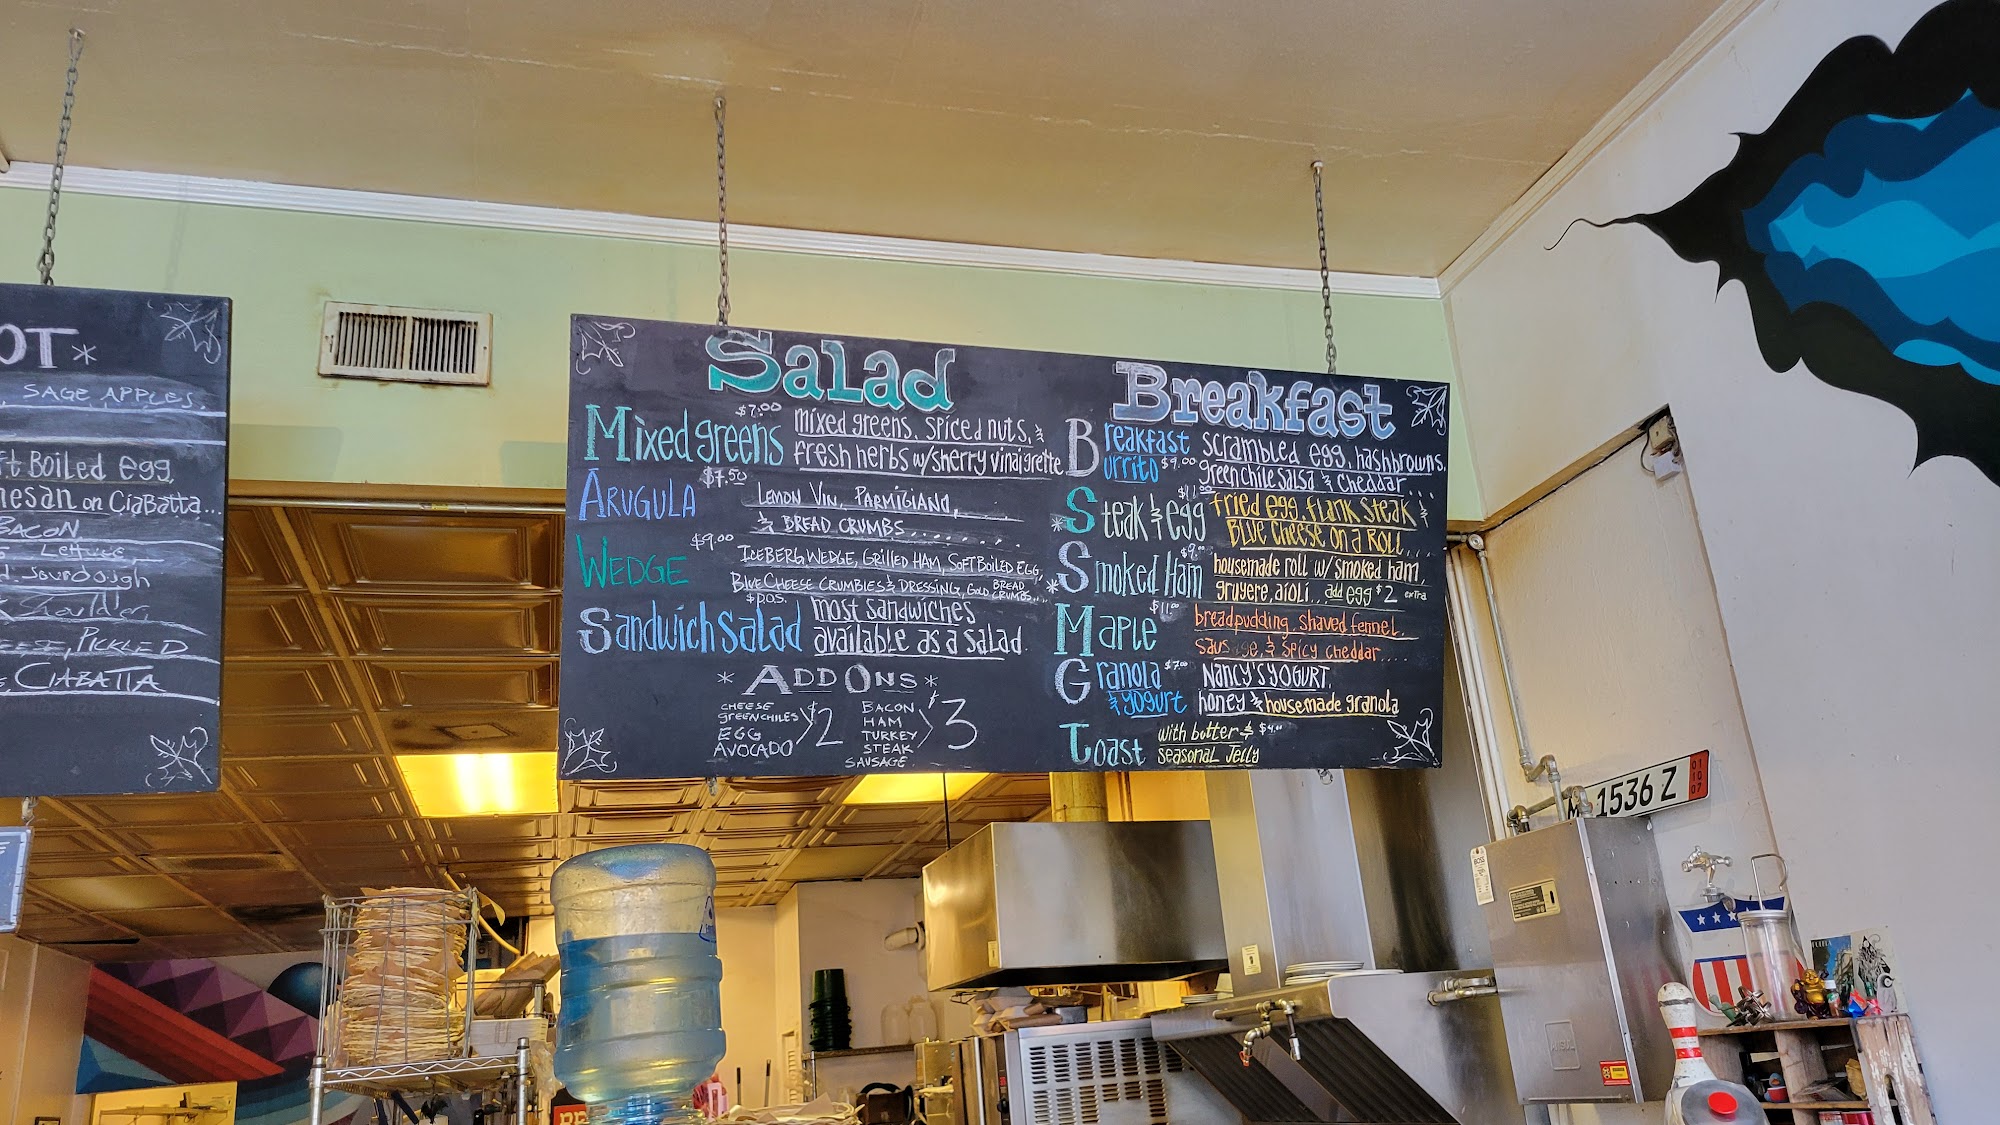 OT*
SAGE APPLES,
FT BOILED EGG
MESAN ON CIABATTA...
BACON
LETTUCE,
SOURDOUGH
SHOULDER,
EESE, PICKLED
CIABATTA
Salad
Mixed greens $7.00 mixed greens, spiced nuts, &
fresh herbs w/sherry vinaigrette
ARUGULA $7.50 LEMON VIN, PARMIGIANO,
& BREAD CRUMBS........
WEDGE $9.00 ICEBERG WEDGE, GRILLED HAM, SOFT BOILED EGG,
BLUE CHEESE CRUMBLES & DRESSING, GOLD BREAD CRUMBS...
Sandwich Salad $P.O.S. most sandwiches
available as a salad
* ADD ONS *
CHEESE
GREEN CHILES
EGG
AVOCADO
$2
BACON
HAM
TURKEY
STEAK
SAUSAGE
$3
Breakfast
Breakfast
Burrito $9.00 scrambled egg, hashbrowns,
green chile salsa & cheddar....
*Steak & egg $11.00 fried egg, flank steak &
BLUE CHEESE ON A ROLL...
*Smoked Ham $9.00 housemade roll w/ smoked ham,
gruyere, aioli... add egg $2 extra
MAPLE $11.00 breadpudding, shaved fennel,
sausage, & spicy cheddar....
Granola $7.00 NANCY'S YOGURT,
& yogurt honey & housemade granola
Toast with butter & $4.00
seasonal Jelly
1536 Z
01
10
07